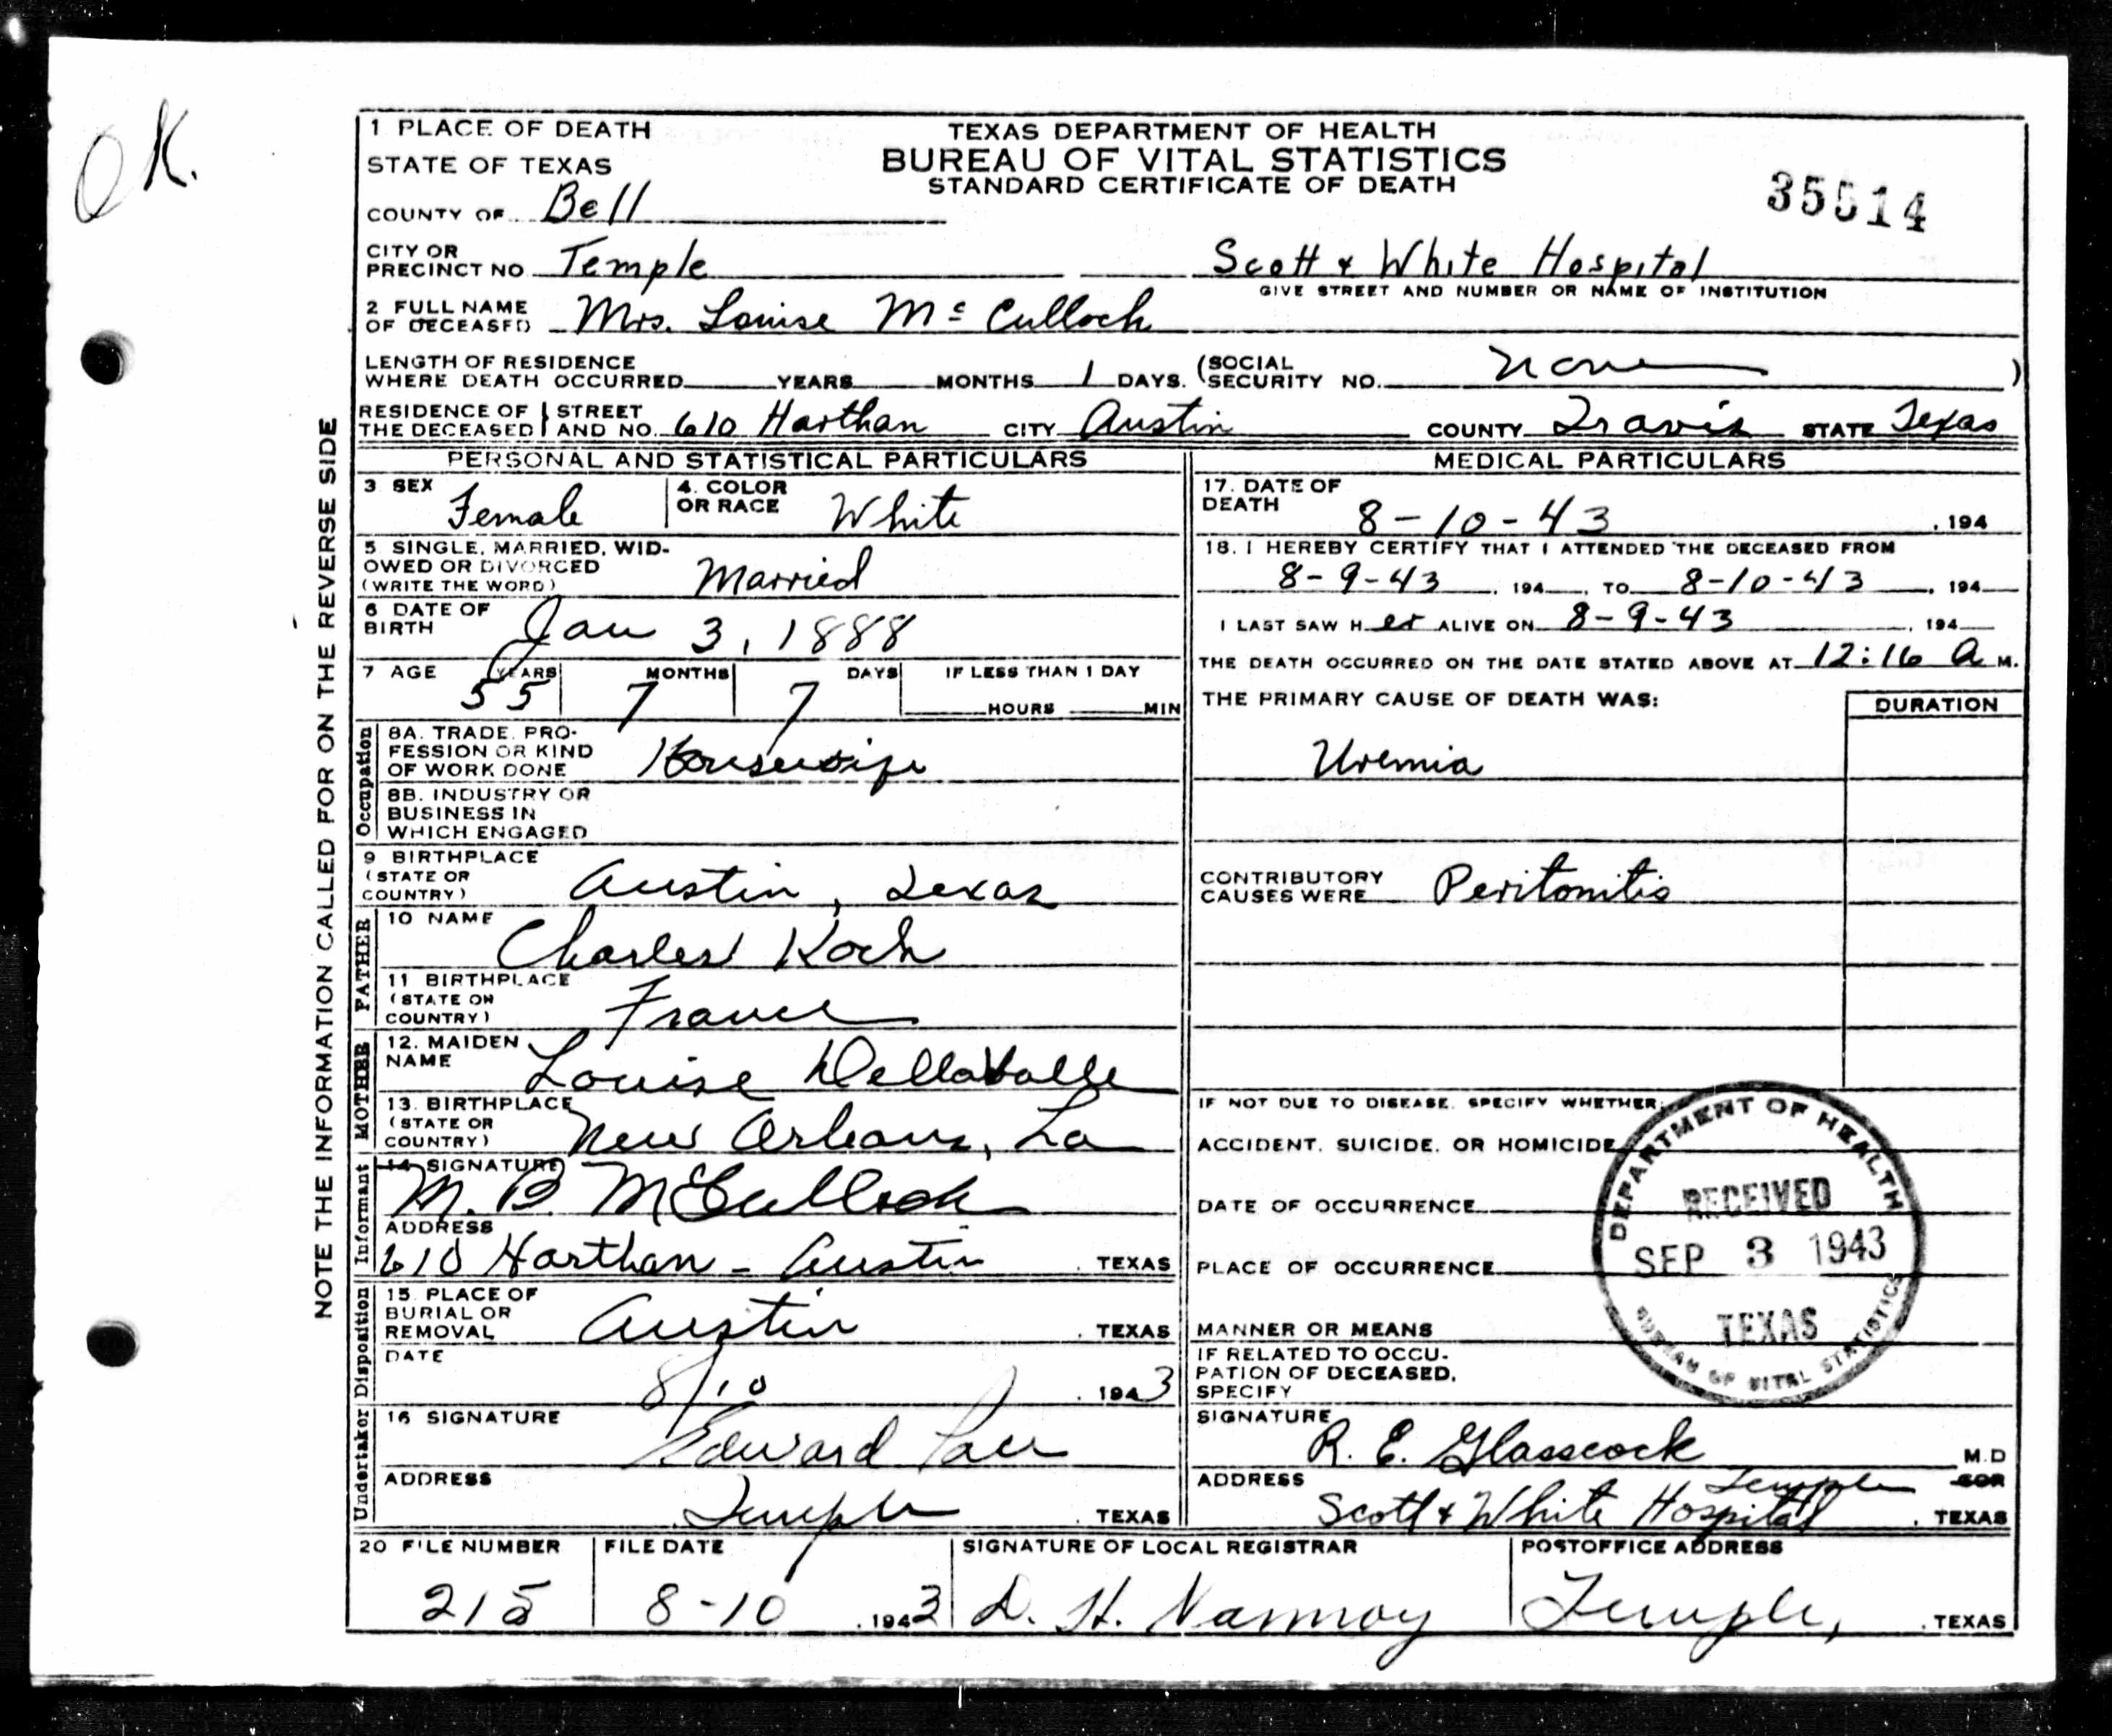 OK.
1 PLACE OF DEATH
STATE OF TEXAS
COUNTY OF Bell
TEXAS DEPARTMENT OF HEALTH
BUREAU OF VITAL STATISTICS
STANDARD CERTIFICATE OF DEATH
35514
CITY OR
PRECINCT NO Temple Scott & White Hospital
GIVE STREET AND NUMBER OR NAME OF INSTITUTION
2 FULL NAME
OF DECEASED Mrs. Louise McCulloch
LENGTH OF RESIDENCE
WHERE DEATH OCCURRED YEARS MONTHS 1 DAYS. (SOCIAL SECURITY NO. None )
RESIDENCE OF THE DECEASED STREET AND NO. 610 Harthan CITY Austin COUNTY Travis STATE Texas
NOTE THE INFORMATION CALLED FOR ON THE REVERSE SIDE
PERSONAL AND STATISTICAL PARTICULARS
3 SEX Female
4. COLOR OR RACE White
5 SINGLE, MARRIED, WID-
OWED OR DIVORCED
(WRITE THE WORD) Married
6 DATE OF
BIRTH Jan 3, 1888
7 AGE YEARS MONTHS DAYS IF LESS THAN 1 DAY
55 7 7 HOURS MIN
Occupation
8A. TRADE, PRO-
FESSION OR KIND
OF WORK DONE Housewife
8B. INDUSTRY OR
BUSINESS IN
WHICH ENGAGED
9 BIRTHPLACE
(STATE OR
COUNTRY) Austin, Texas
FATHER
10 NAME
Charles Koch
11 BIRTHPLACE
(STATE OR
COUNTRY) France
MOTHER
12. MAIDEN
NAME Louise DellaValle
13. BIRTHPLACE
(STATE OR
COUNTRY) New Orleans, La
Informant
14 SIGNATURE
M. B. McCulloch
ADDRESS
610 Harthan - Austin TEXAS
Disposition
15. PLACE OF
BURIAL OR
REMOVAL Austin TEXAS
DATE
8/10 1943
Undertaker
16 SIGNATURE
Edward
ADDRESS
Temple TEXAS
MEDICAL PARTICULARS
17. DATE OF
DEATH 8-10-43 , 194
18. I HEREBY CERTIFY THAT I ATTENDED THE DECEASED FROM
8-9-43 , 194 , TO 8-10-43 , 194
I LAST SAW H er ALIVE ON 8-9-43 , 194
THE DEATH OCCURRED ON THE DATE STATED ABOVE AT 12:16 A M.
THE PRIMARY CAUSE OF DEATH WAS: DURATION
Uremia
CONTRIBUTORY
CAUSES WERE Peritonitis
IF NOT DUE TO DISEASE, SPECIFY WHETHER:
ACCIDENT, SUICIDE, OR HOMICIDE
DATE OF OCCURRENCE
PLACE OF OCCURRENCE
MANNER OR MEANS
IF RELATED TO OCCU-
PATION OF DECEASED,
SPECIFY
DEPARTMENT OF HEALTH
RECEIVED
SEP 3 1943
TEXAS
BUREAU OF VITAL STATISTICS
SIGNATURE
R. E. Glasscock M.D
ADDRESS Temple COR
Scott & White Hospital TEXAS
20 FILE NUMBER FILE DATE SIGNATURE OF LOCAL REGISTRAR POSTOFFICE ADDRESS
215 8-10 , 1943 D. H. Temple, TEXAS